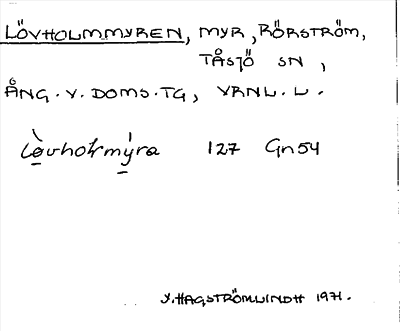 LÖVHOLMMYREN, MYR, RÖRSTRÖM,
TÅSJÖ SN,
ÅNG. V. DOMS. TG, VRNL. L.
Lòvholmýra 127 Gn54
Y. HAGSTRÖMLINDH 1971.